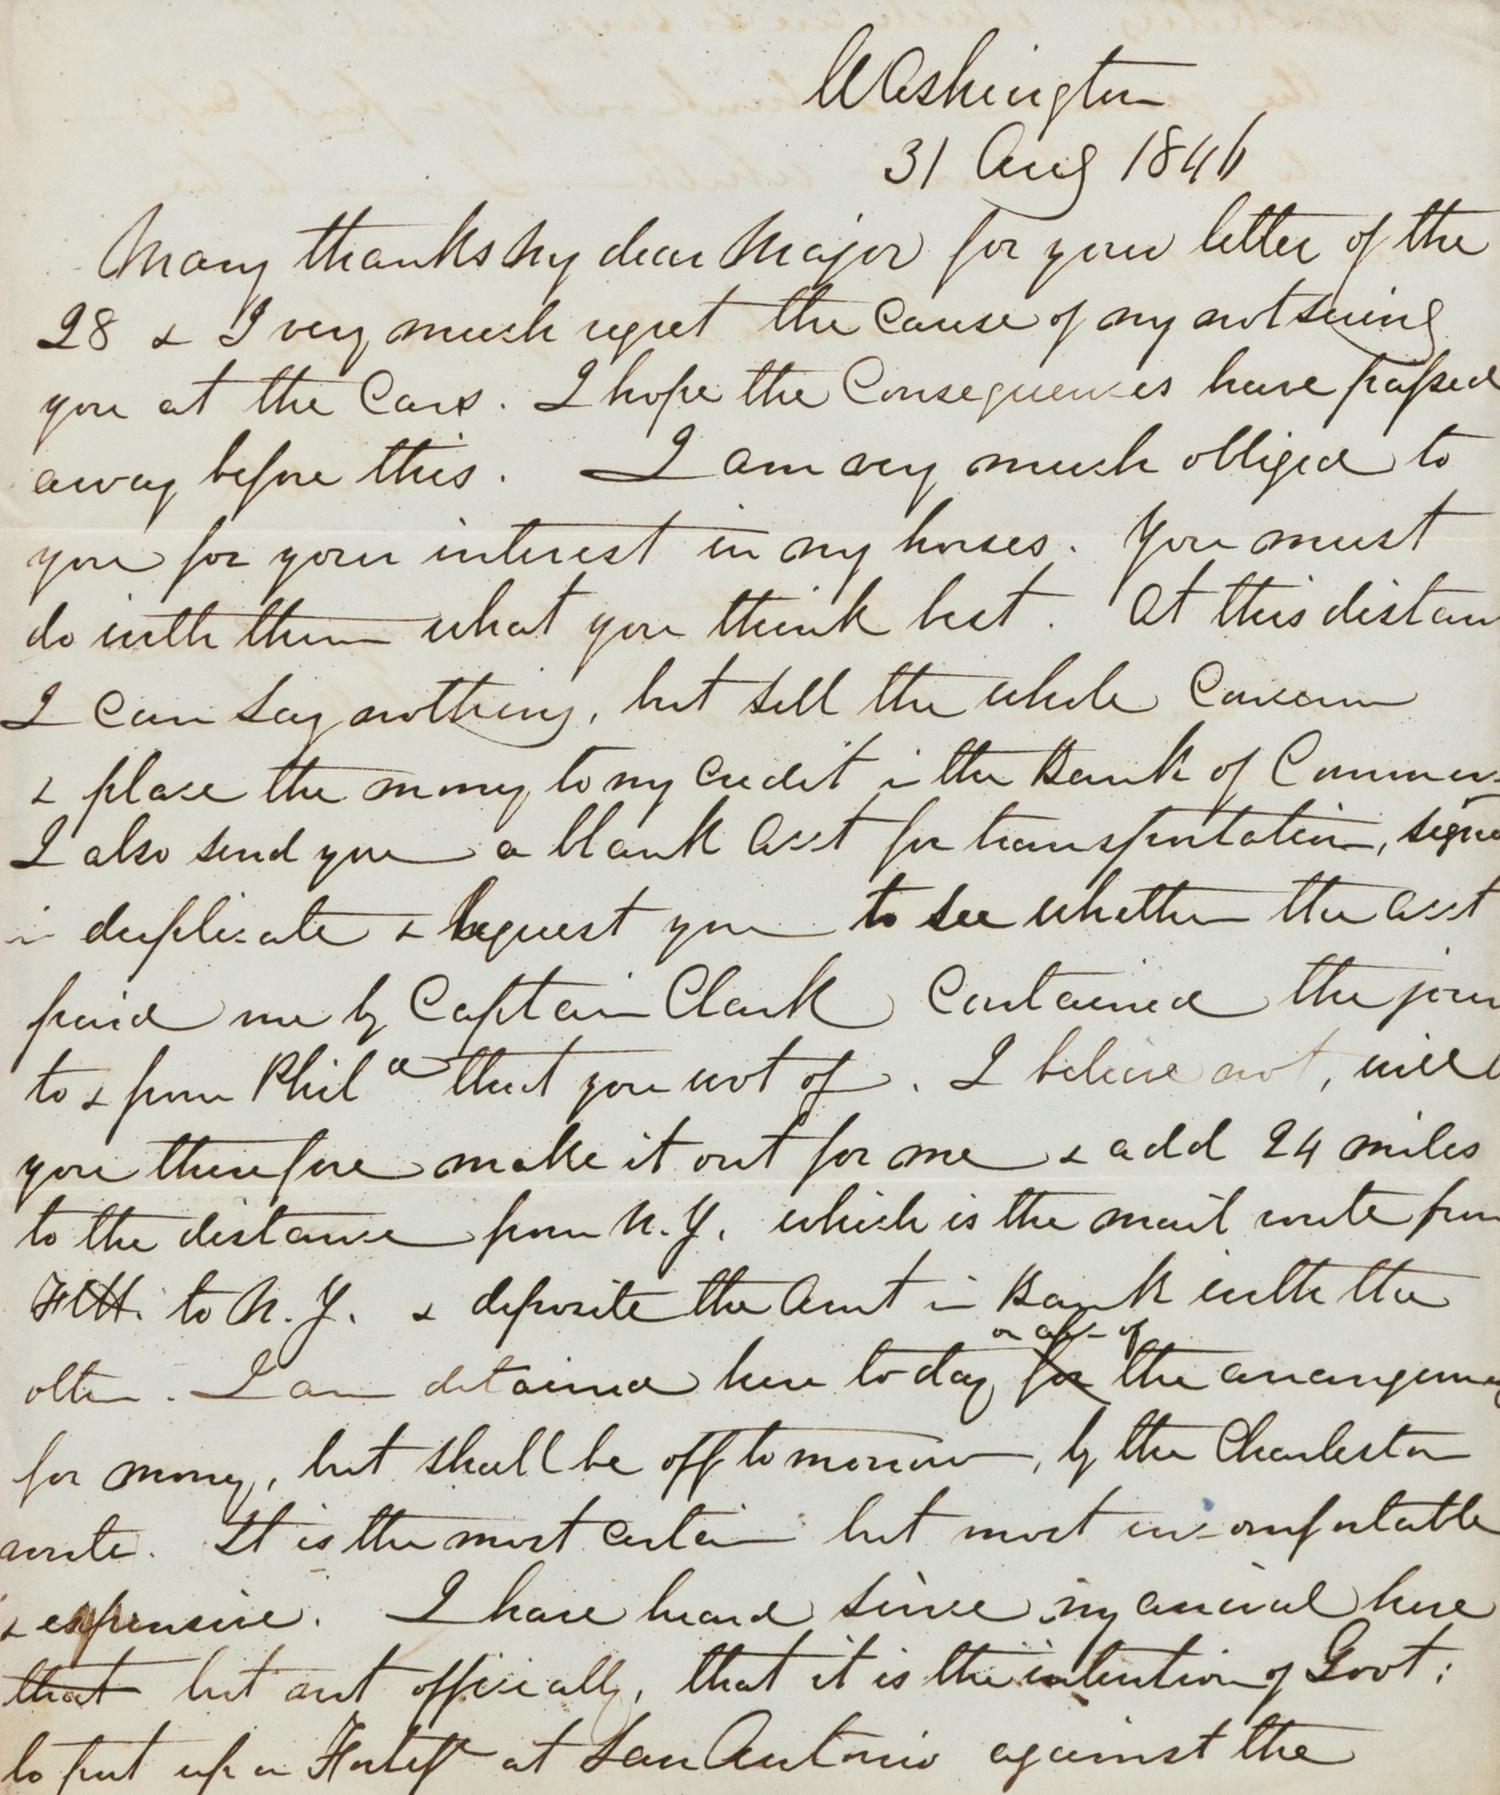 Washington
31 Aug 1846
Many thanks my dear Major for your letter of the
28 & I very much regret the cause of my not seeing
you at the Cars. I hope the Consequences have passed
away before this. I am very much obliged to
you for your interest in my horses. You must
do with them what you think best. At this distan
I can say nothing, but sell the whole Concern
& place the money to my credit in the Bank of Commer
I also send you a blank acct for transportation, signe
in duplicate & request you to see whether the acct
paid me by Captain Clark Contained the jour
to & from Phila that you wot of. I believe not, will
you therefore make it out for me & add 24 miles
to the distance from N.Y. which is the mail route from
FtH. to N.Y. & deposite the Amt in Bank with the
other. I am detained here today for on acct of the arrangemen
for money, but shall be off tomorrow, by the Charleston
route. It is the most certain but most uncomfortable
& expensive. I have heard since my arrival here
that but not officially, that it is the intention of Govt:
to put up a Fortifn at San Antonio against the